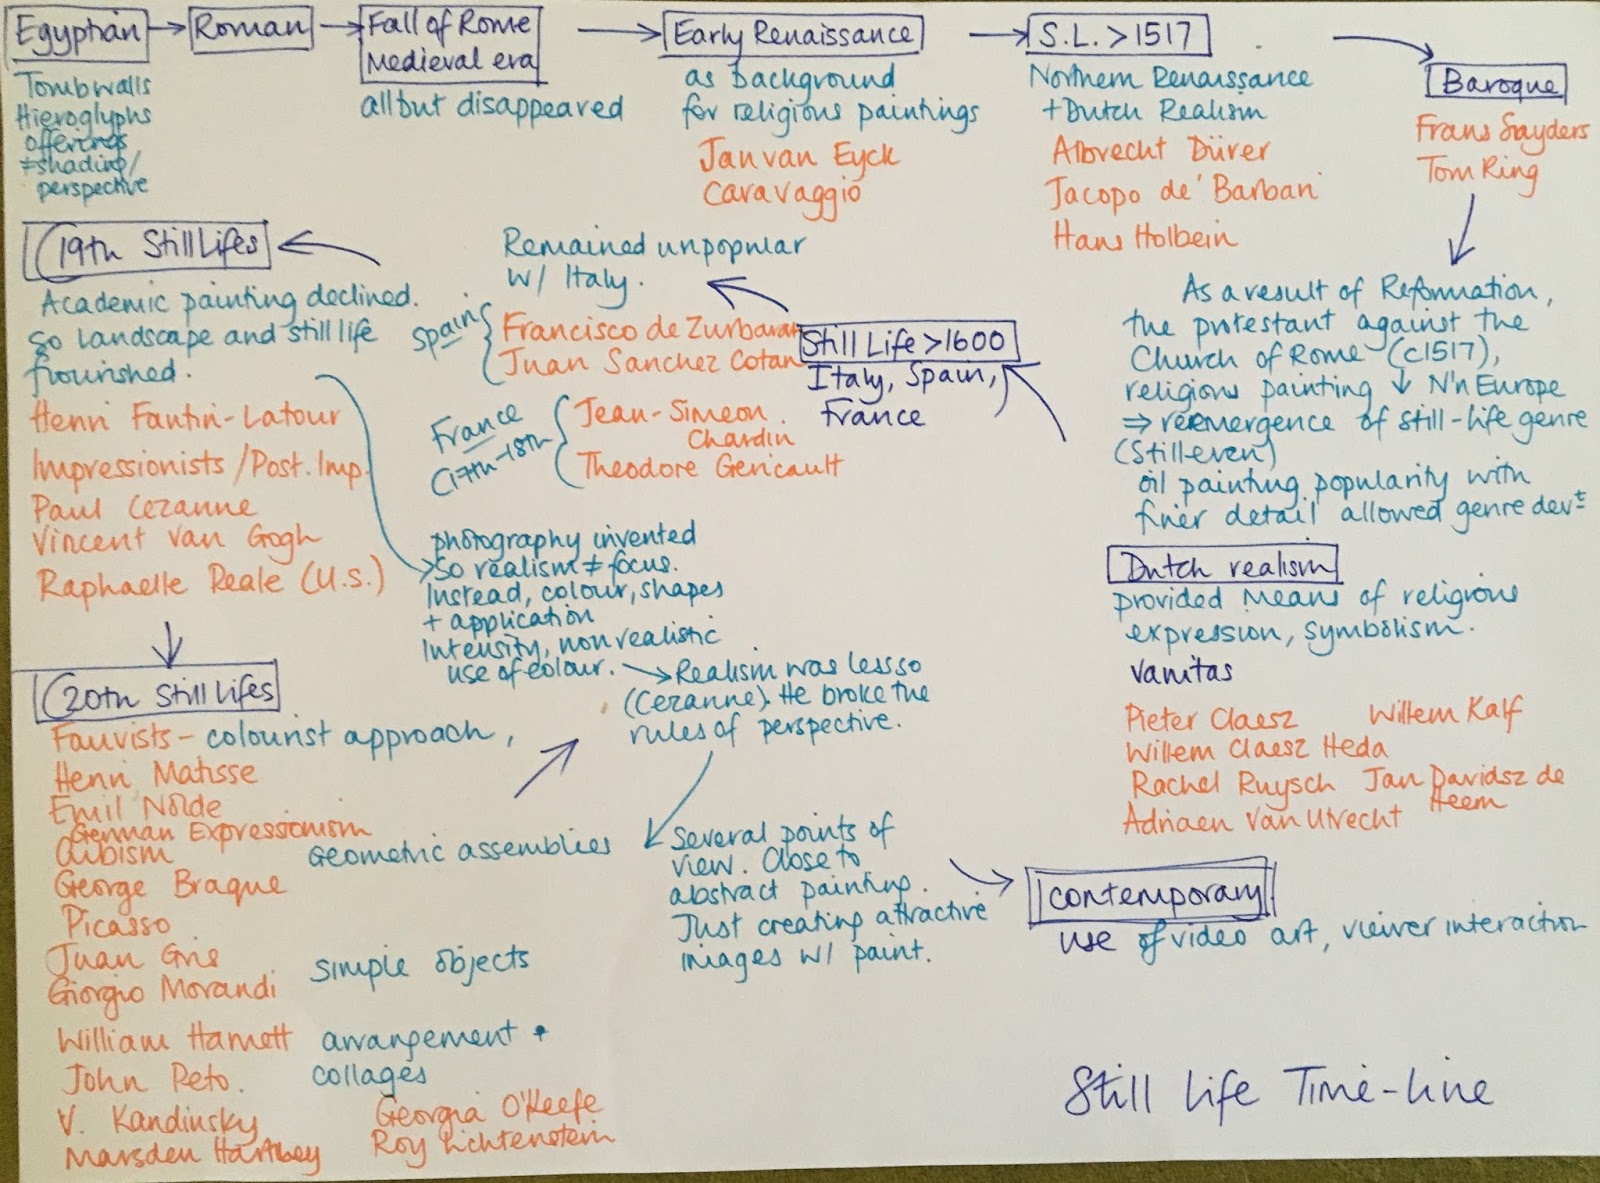 Egyptian
Tombwalls
Hieroglyphs
offerings
≠shading/
perspective
Roman
Fall of Rome
Medieval era
all but disappeared
Early Renaissance
as background
for religious paintings
Jan van Eyck
Caravaggio
S.L. > 1517
Northern Renaissance
+ Dutch Realism
Albrecht Dürer
Jacopo de' Barbari
Hans Holbein
Baroque
Frans Snyders
Tom Ring
As a result of Reformation,
the protestant against the
Church of Rome (c1517),
religious painting ↓ N'n Europe
⇒ reemergence of still-life genre
(Stilleven)
oil painting popularity with
finer detail allowed genre devt
Dutch realism
provided means of religious
expression, symbolism.
vanitas
Pieter Claesz Willem Kalf
Willem Claesz Heda
Rachel Ruysch Jan Davidsz de
Heem
Adriaen van Utrecht
Still Life > 1600
Italy, Spain,
France
Remained unpopular
w/ Italy.
Spain
Francisco de Zurbaran
Juan Sanchez Cotan
France
C17th-18th
Jean-Simeon
Chardin
Theodore Gericault
19th Still Lifes
Academic painting declined.
So landscape and still life
flourished.
Henri Fantin-Latour
Impressionists/Post.Imp.
Paul Cezanne
Vincent Van Gogh
Raphaelle Peale (U.S.)
photography invented
So realism ≠ focus.
Instead, colour, shapes
+ application
Intensity, non realistic
use of colour.
Realism was less so
(Cezanne). He broke the
rules of perspective.
20th Still Lifes
Fauvists - colourist approach,
Henri Matisse
Emil Nolde
German Expressionism
Cubism Geometric assemblies
George Braque
Picasso
Juan Gris
Giorgio Morandi simple objects
William Harnett arrangement +
John Peto. collages
V. Kandinsky Georgia O'Keefe
Marsden Hartley Roy Lichtenstein
Several points of
view. Close to
abstract painting.
Just creating attractive
images w/ paint.
contemporary
use of video art, viewer interaction
Still Life Time-line